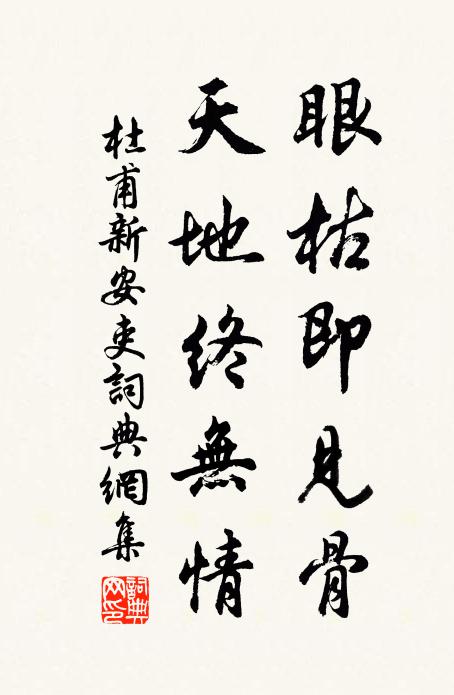 眼枯即見骨
天地終無情
杜甫新安吏詞典網集
詞典網印